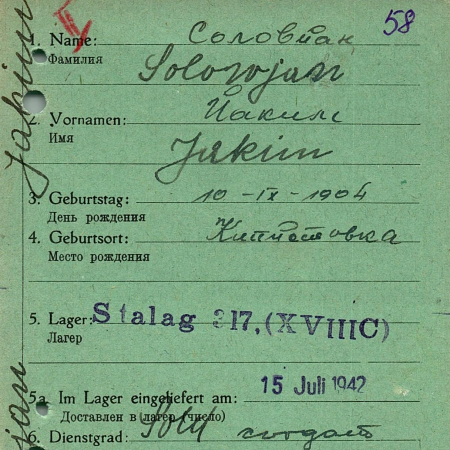 58
1. Name: Соловйан
Фамилия
Solowjan
2. Vornamen: Йаким
Имя
Jakim
3. Geburtstag: 10-IX-1904
День рождения
4. Geburtsort:
Место рождения
5. Lager: Stalag 317, (XVIIIC)
Лагер
5a. Im Lager eingeliefert am: 15 Juli 1942
Доставлен в лагер (число)
6. Dienstgrad: Sold солдат
Jakim
jan